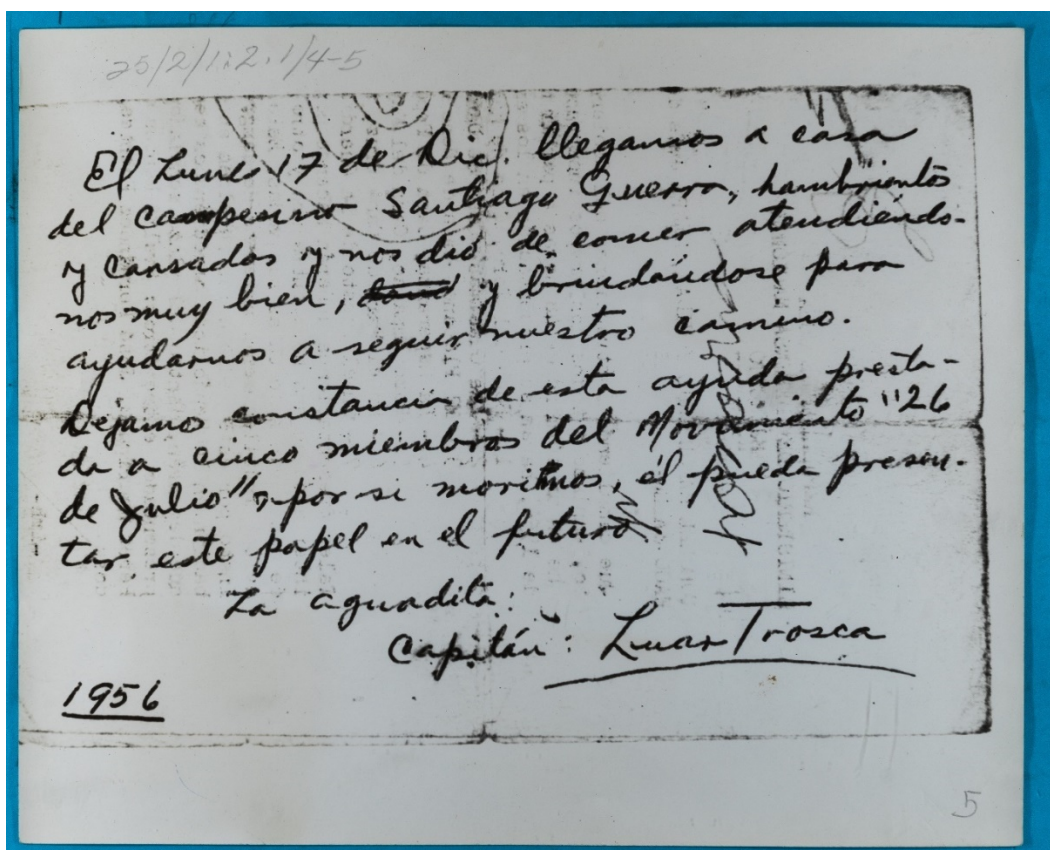 25/2/1:2.1/4-5
El Lunes 17 de Dic. llegamos a casa
del campesino Santiago Guerra, hambrientos
y cansados y nos dió de comer atendiendo-
nos muy bien, y brindándose para
ayudarnos a seguir nuestro camino.
Dejamos constancia de esta ayuda presta-
da a cinco miembros del Movimiento "26
de Julio" y por si morimos, él pueda presen-
tar este papel en el futuro
La aguadita:
Capitán: Luar Trosca
1956
5